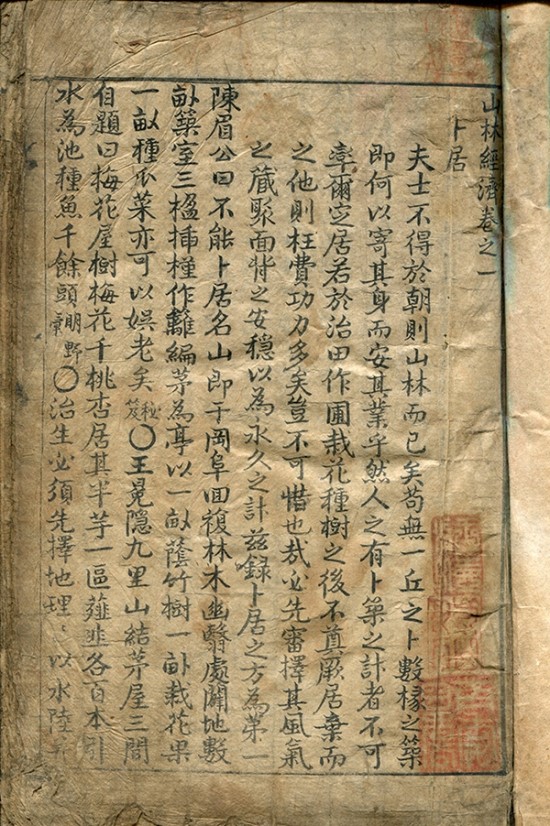 山林經濟卷之一
卜居
夫士不得於朝則山林而已矣苟無一丘之卜數椽之築
即何以寄其身而安其業乎然人之有卜築之計者不可
率爾定居若於治田作圃栽花種樹之後不奠厥居棄而
之他則枉費功力多矣豈不可惜也哉必先審擇其風氣
之蔵聚面背之安穩以為永久之計玆錄卜居之方為第一
陳眉公曰不能卜居名山即于岡阜回複林木幽翳處闢地數
畝築室三楹揷槿作籬編茅為亭以一畝蔭竹樹一畝栽花果
一畝種瓜菜亦可以娛老矣秘笈〇王冕隱九里山結茅屋三間
自題曰梅花屋樹梅花千桃杏居其半芋一區薤韭各百本引
水為池種魚千餘頭明野彙〇治生必須先擇地理〻以水陸